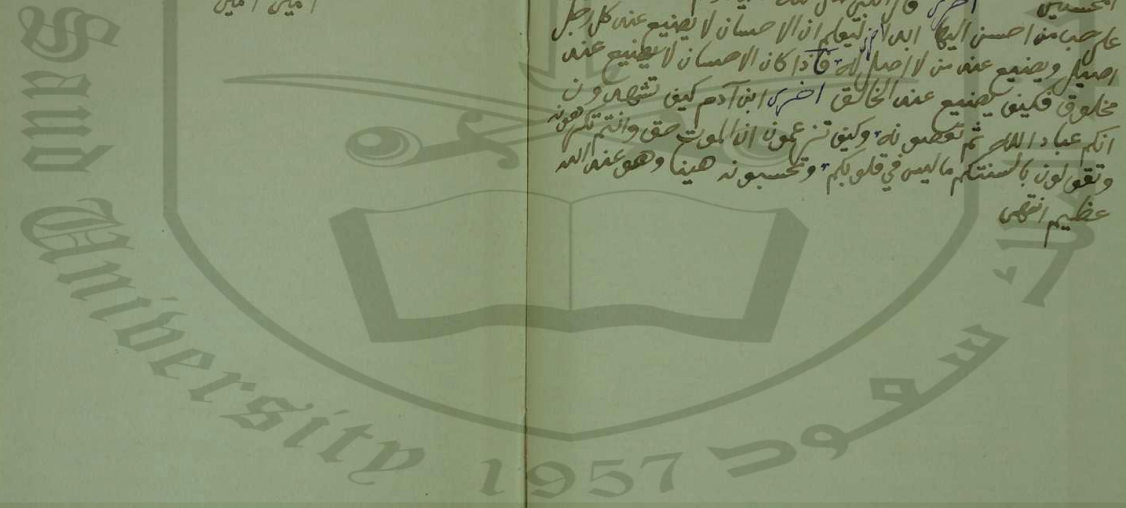 المحسنين اخرى قال
على حب من احسن اليها ابدا اخرى ليعلم ان الاحسان لا يضيع عند كل رجل
اصيل ويضيع عند من لا اصل له فاذا كان الاحسان لا يضيع عند
مخلوق فكيف يضيع عند الخالق اخرى ابن آدم كيف تشهدون
انكم عباد الله ثم تعصونه وكيف تزعمون ان الموت حق وانتم تكرهونه
وتقولون بالسنتكم ما ليس في قلوبكم وتحسبونه هينا وهو عند الله
عظيم انتهى
امين امين
Saud University 1957
سعود